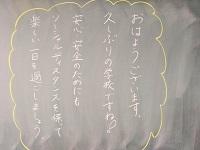 おはようございます。
久しぶりの学校ですね♪
安心、安全のためにも
ソーシャルディスタンスを保って
楽しい一日を過ごしましょう。